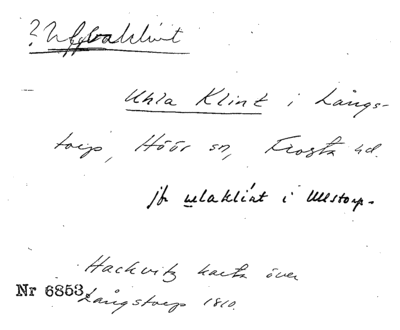 ? Uggleklint
Uhla Klint i Långs-
torp, Höör sn, Frosta hd.
jfr ulaklint i Ullstorp.
Hackvitz karta över
Nr 6853 Långstorp 1810.